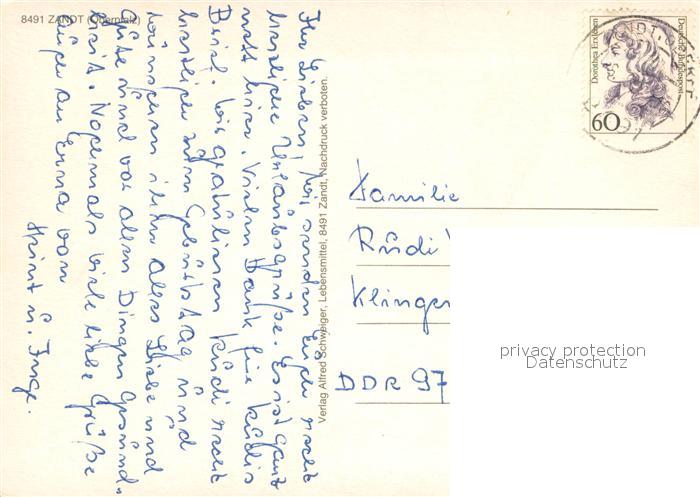 8491 ZANDT (Oberpfalz)
Ihr Lieben, wir senden Euch recht
herzliche Urlaubsgrüße. Es ist ganz
nett hier. Vielen Dank für Rüdis
Brief. Wir gratulieren Rüdi recht
herzlich zum Gebürtstag und
wünschen ihm alles Liebe und
Gute und vor allen Dingen Gesund-
heit. Nochmals viele liebe Grüße
auch an Erna von
Heinz u. Inge.
Verlag Alfred Schweiger, Lebensmittel, 8491 Zandt, Nachdruck verboten.
Dorothea Erxleben
Deutsche Bundespost
60
Familie
Rüdi
Klingen
DDR 97
privacy protection
Datenschutz